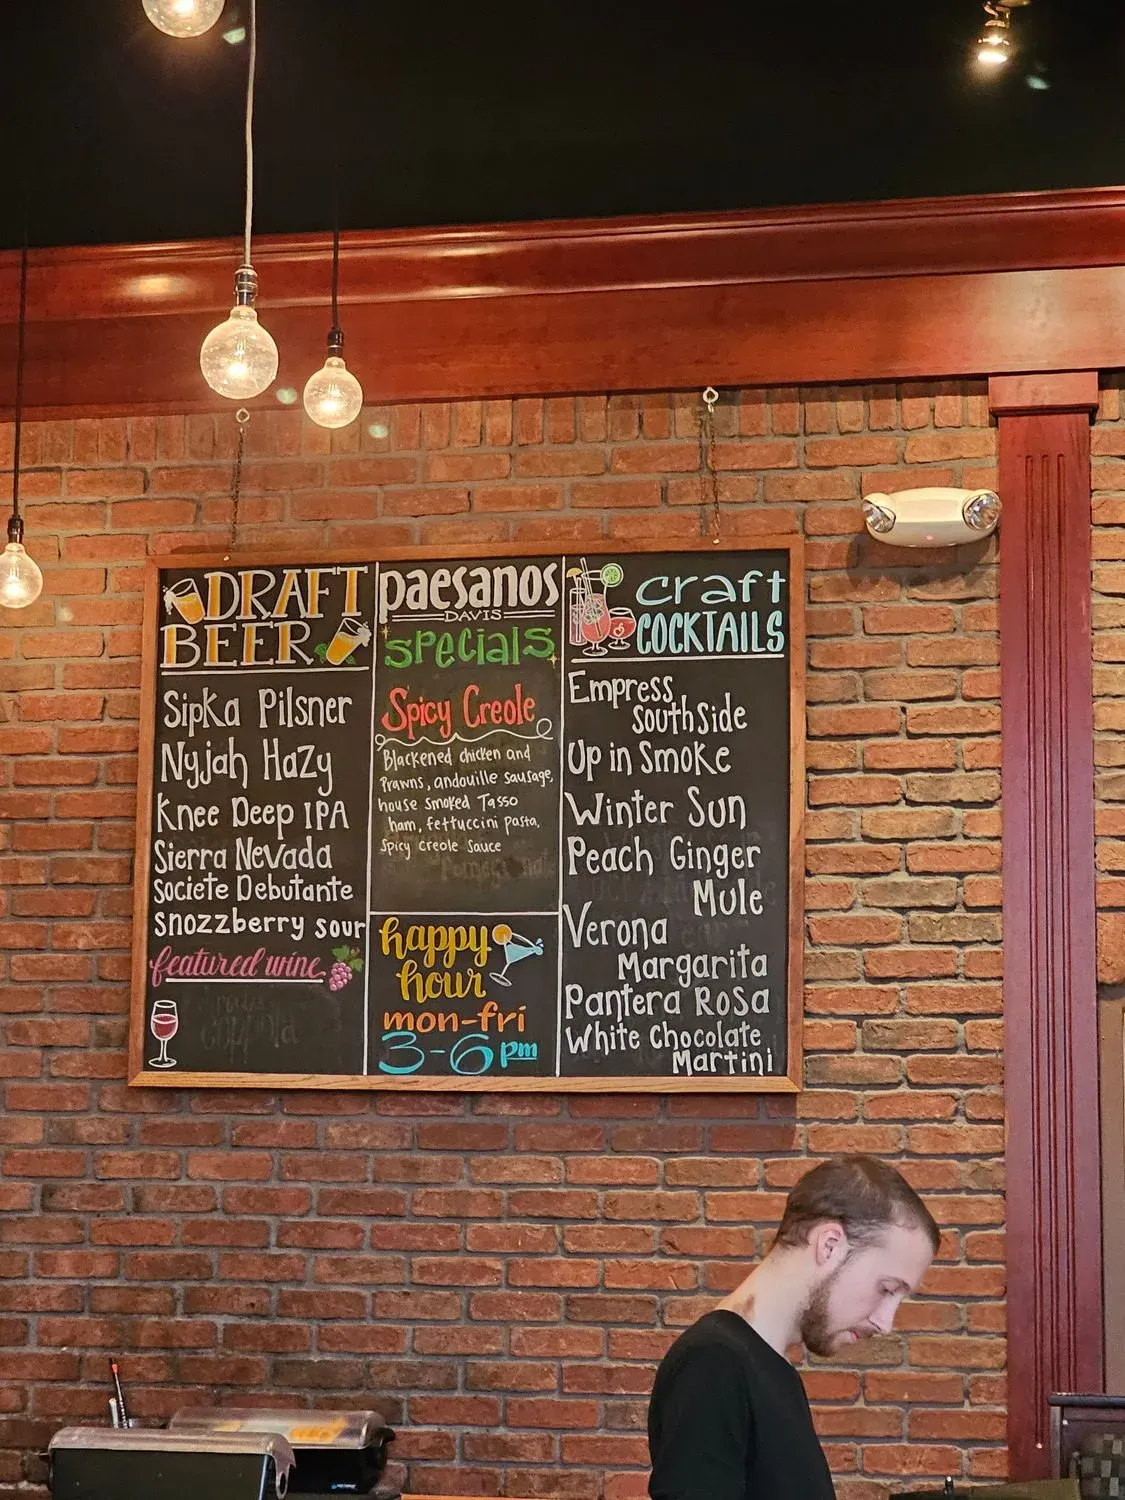 DRAFT
BEER
Sipka Pilsner
Nyjah Hazy
Knee Deep IPA
Sierra Nevada
Societe Debutante
snozzberry sour
featured wine
paesanos
DAVIS
specials
Spicy Creole
Blackened chicken and
Prawns, andouille sausage,
house smoked Tasso
ham, fettuccini pasta,
spicy creole sauce
happy
hour
mon-fri
3-6pm
craft
COCKTAILS
Empress
southside
Up in Smoke
Winter Sun
Peach Ginger
Mule
Verona
Margarita
Pantera Rosa
White Chocolate
Martini